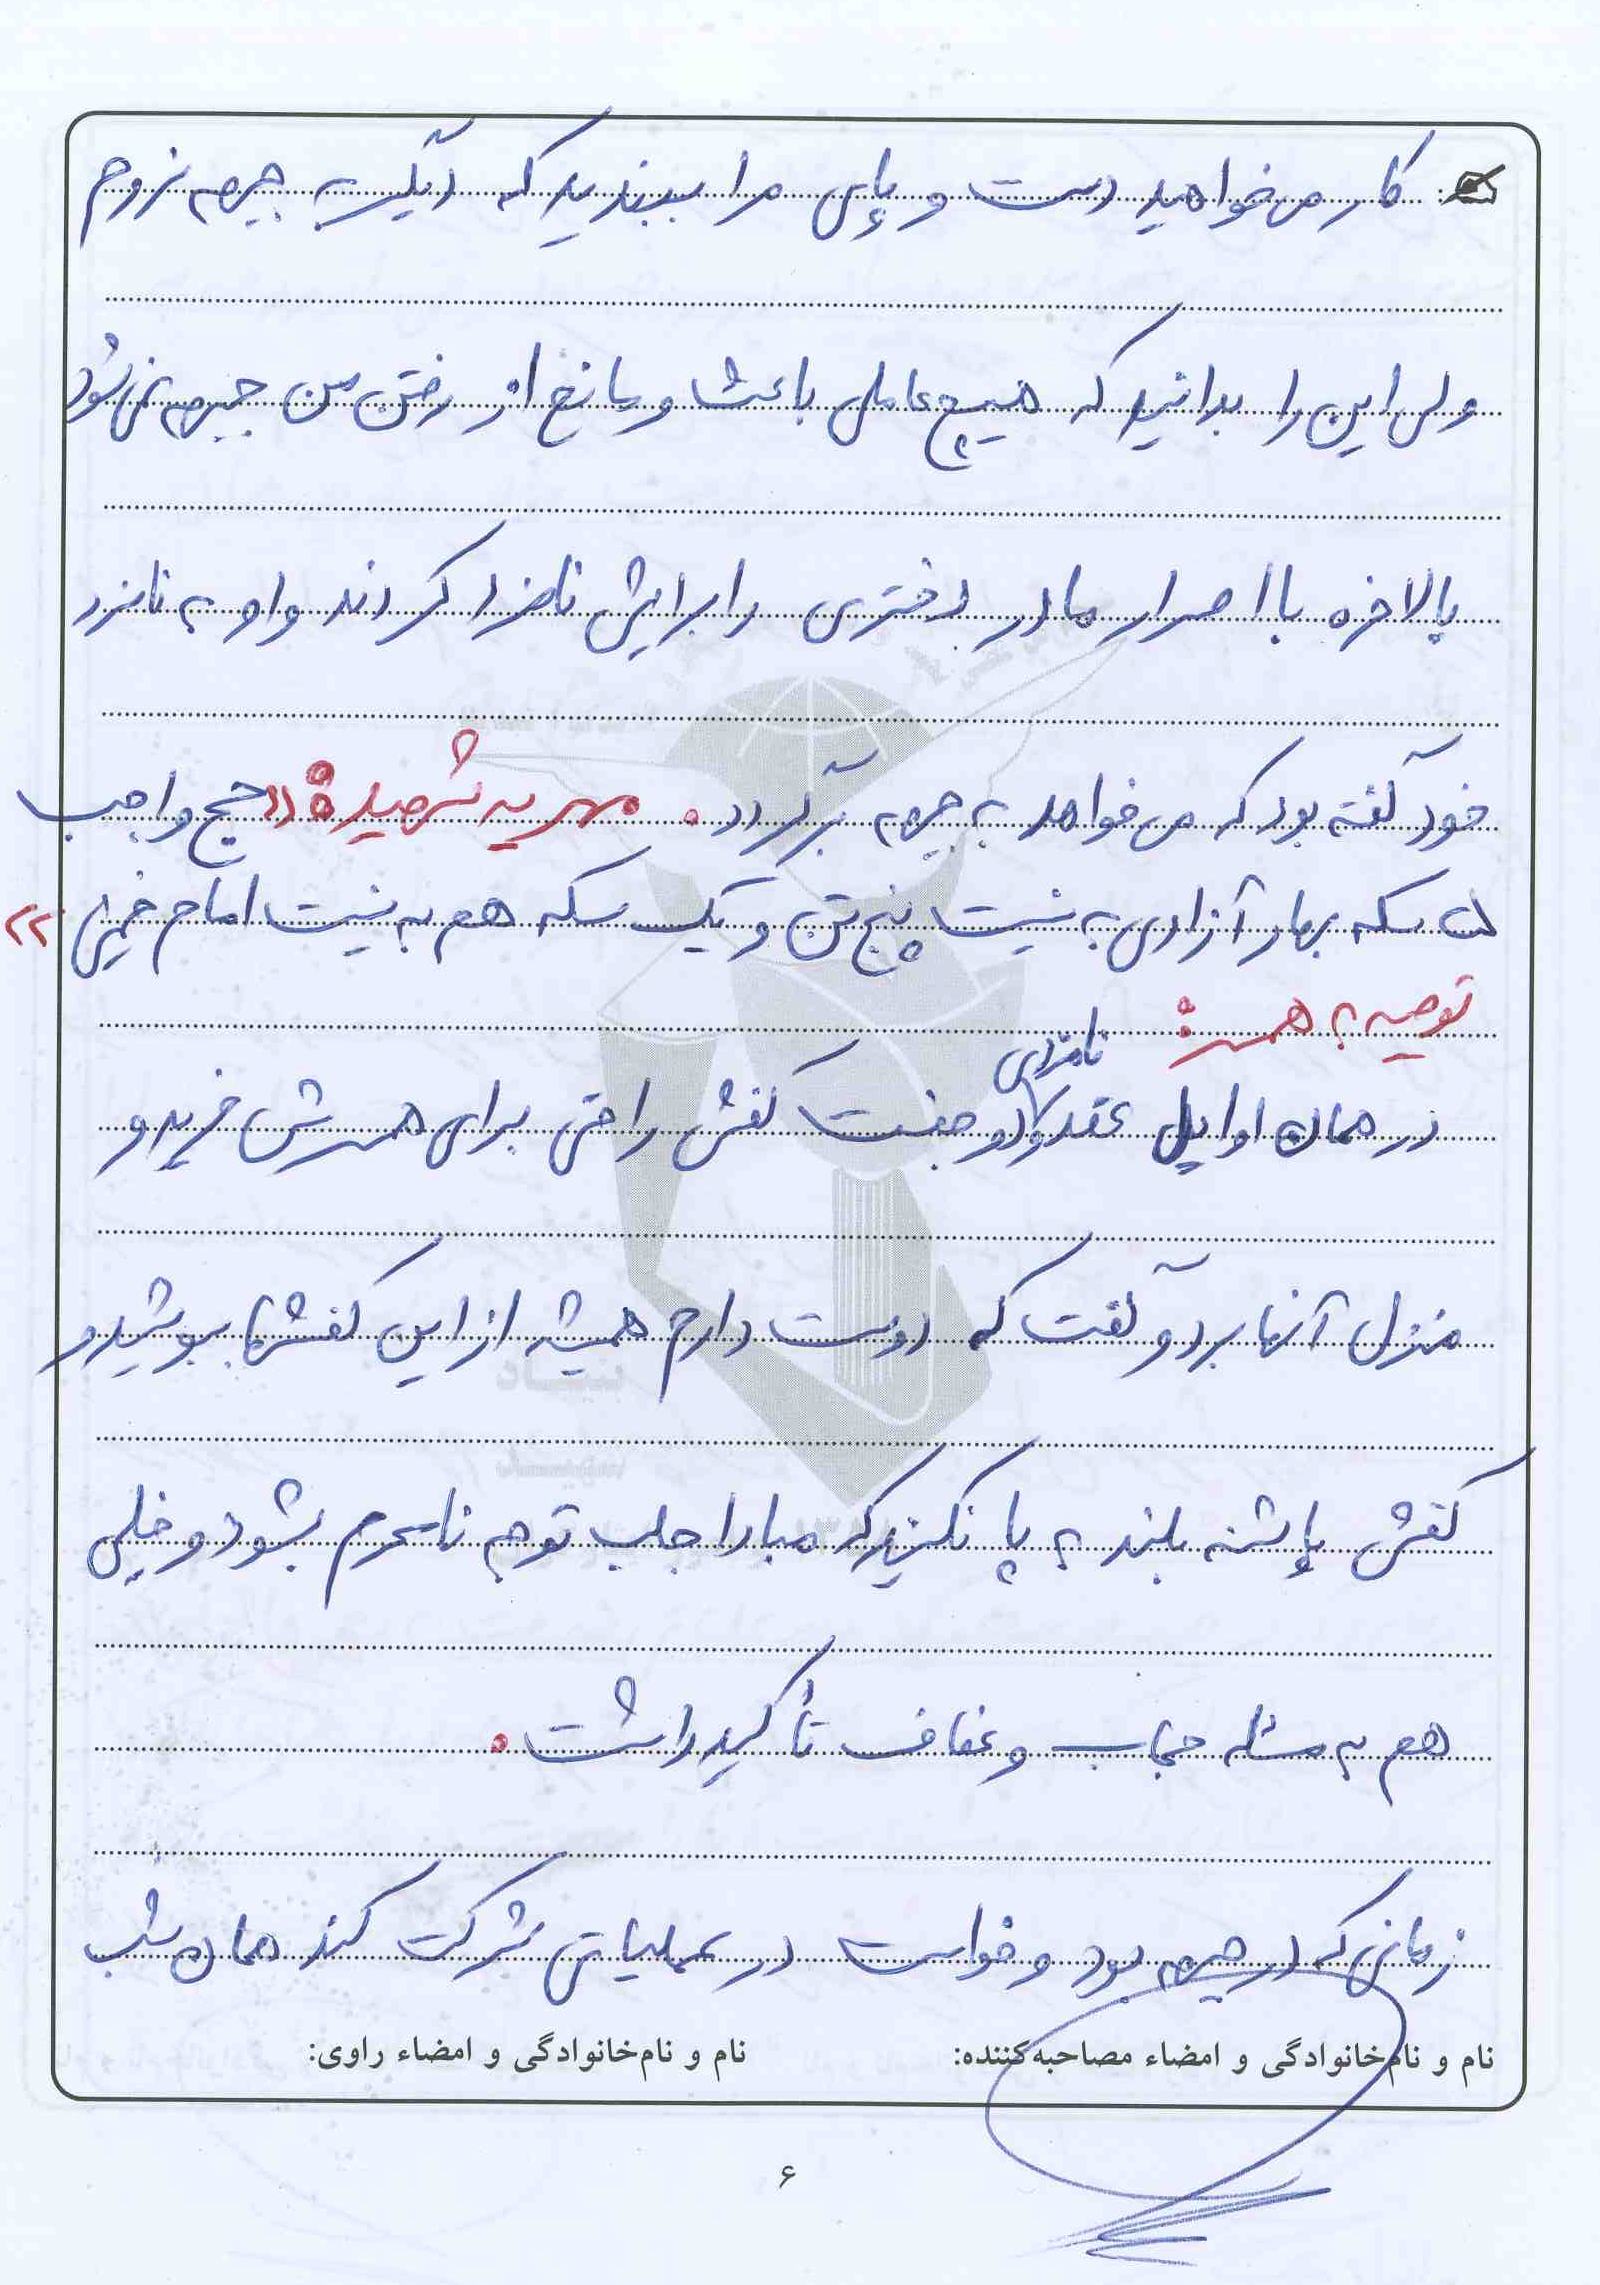 کار می‌خواهید دست و پای مرا ببندید که دیگر به جبهه نروم
ولی این را بدانید که هیچ عاملی باعث و مانع از رفتن من جبهه نمی‌شود
بالاخره با اصرار مادر دختری را برایش نامزد کردند و او به نامزد
خود گفته بود که می‌خواهد به جبهه برگردد. مهریه شهیده: «حج واجب
۵ سکه بهار آزادی به نیت پنج تن و یک سکه هم به نیت امام خمینی»
توصیه به همسر:
نامزدی
در همان اوایل عقد و دو جفت کفش راحتی برای همسرش خرید و
منزل آنها برد و گفت که دوست دارم همیشه از این کفشها بپوشید و
کفش پاشنه بلند به پا نکنید که مبادا جلب توجه نامحرم بشود و خیلی
هم به مسئله حجاب و عفاف تأکید داشت.
زمانی که در جبهه بود و خواست در عملیاتی شرکت کند همان شب
نام و نام‌خانوادگی و امضاء مصاحبه‌کننده: نام و نام‌خانوادگی و امضاء راوی:
۶